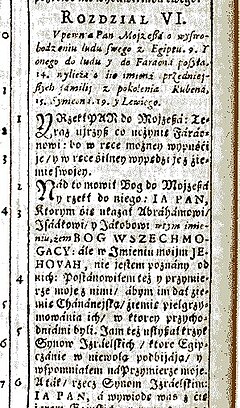 ROZDZIAŁ VI.
Upewnia Pan Mojżesza o wyswo-
bodzeniu ludu swego z Egiptu. 9. Y
onego do ludu y do Faraona posyła.
14. wylicza się imiona przedniej-
szych familij z pokolenia Rubena,
15. Symeona. 19. y Lewiego.
1 Y Rzekł PAN do Mojżesza: Te-
raz ujrzysz co uczynię Farao-
nowi: bo w ręce możney wypuści
je/ y w ręce silney wypędzi je z zie-
mie swojey.
2 Nad to mowił Bog do Mojżesza/
y rzekł do niego: JA PAN,
3 Ktorym się ukazał Abrahamowi/
Izaakowi/ y Jakobowi w tym imie-
niu, żem BOG WSZECHMO-
GACY: ale w Imieniu mojim JE-
HOVAH, nie jestem poznany od
nich:
4 Postanowiłem też y przymie-
rze moje z nimi/ abym im dał zie-
mie Chananejską/ ziemię pielgrzy-
mowania ich/ w ktorey przycho-
dniami byli.
5 Jam też usłyszał krzyk
Synow Izraelskich/ ktore Egip-
czanie w niewolą podbijają/ y
wspomniałem na Przymierze moje.
6 A tak/ rzecz Synom Izraelskim:
JA PAN, a wywiodę was z cię-